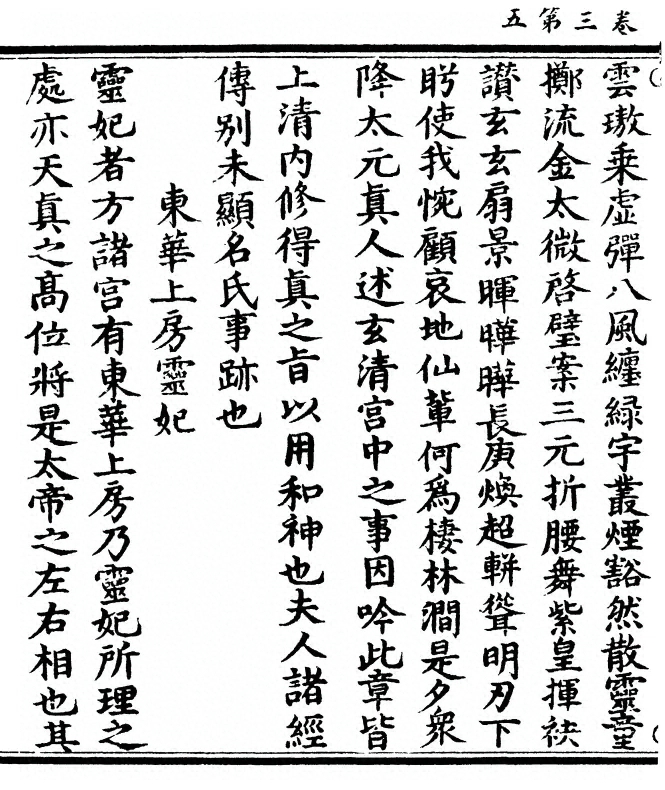 卷三第五
雲璈乗虚彈八風纏緑字叢煙豁然散靈童
擲流金太微啓璧案三元折腰舞紫皇揮袂
讃玄玄扇景暉曄曄長庚煥超軿聳明刃下
眄使我惋顧哀地仙輩何為棲林澗是夕衆
降太元眞人述玄清宫中之事因吟此章皆
上清内修得眞之旨以用和神也夫人諸經
傳别未顯名氏事跡也
東華上房靈妃
靈妃者方諸宫有東華上房乃靈妃所理之
處亦天眞之髙位將是太帝之左右相也其